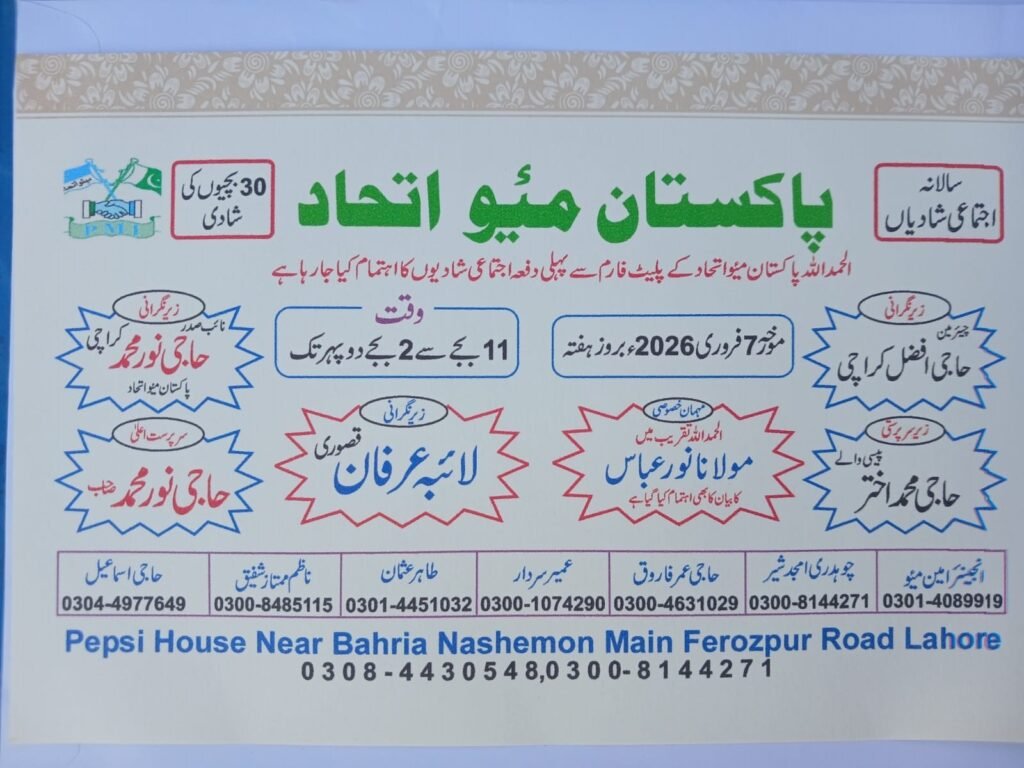 سالانہ
اجتماعی شادیاں
پاکستان مئیو اتحاد
30 بچیوں کی
شادی
PMI
الحمد اللہ پاکستان میئو اتحاد کے پلیٹ فارم سے پہلی دفعہ اجتماعی شادیوں کا اہتمام کیا جا رہا ہے
زیر نگرانی
چیئرمین
حاجی افضل کراچی
مورخہ 7 فروری 2026ء بروز ہفتہ
وقت
11 بجے سے 2 بجے دوپہر تک
زیر نگرانی
نائب صدر کراچی
حاجی نور محمد
پاکستان میئو اتحاد
زیر سرپرستی
پیپسی والے
حاجی محمد اختر
مہمان خصوصی
الحمد اللہ تقریب میں
مولانا نور عباس
کا بیان کا بھی اہتمام کیا گیا ہے
زیر نگرانی
لائبہ عرفان قصوری
سرپرست اعلیٰ
حاجی نور محمد صاحب
انجینئر امین میئو
0301-4089919
چوہدری امجد شیر
0300-8144271
حاجی عمر فاروق
0300-4631029
عمیر سردار
0300-1074290
طاہر عثمان
0301-4451032
ناظم ممتاز شفیق
0300-8485115
حاجی اسماعیل
0304-4977649
Pepsi House Near Bahria Nashemon Main Ferozpur Road Lahore
0308-4430548,0300-8144271